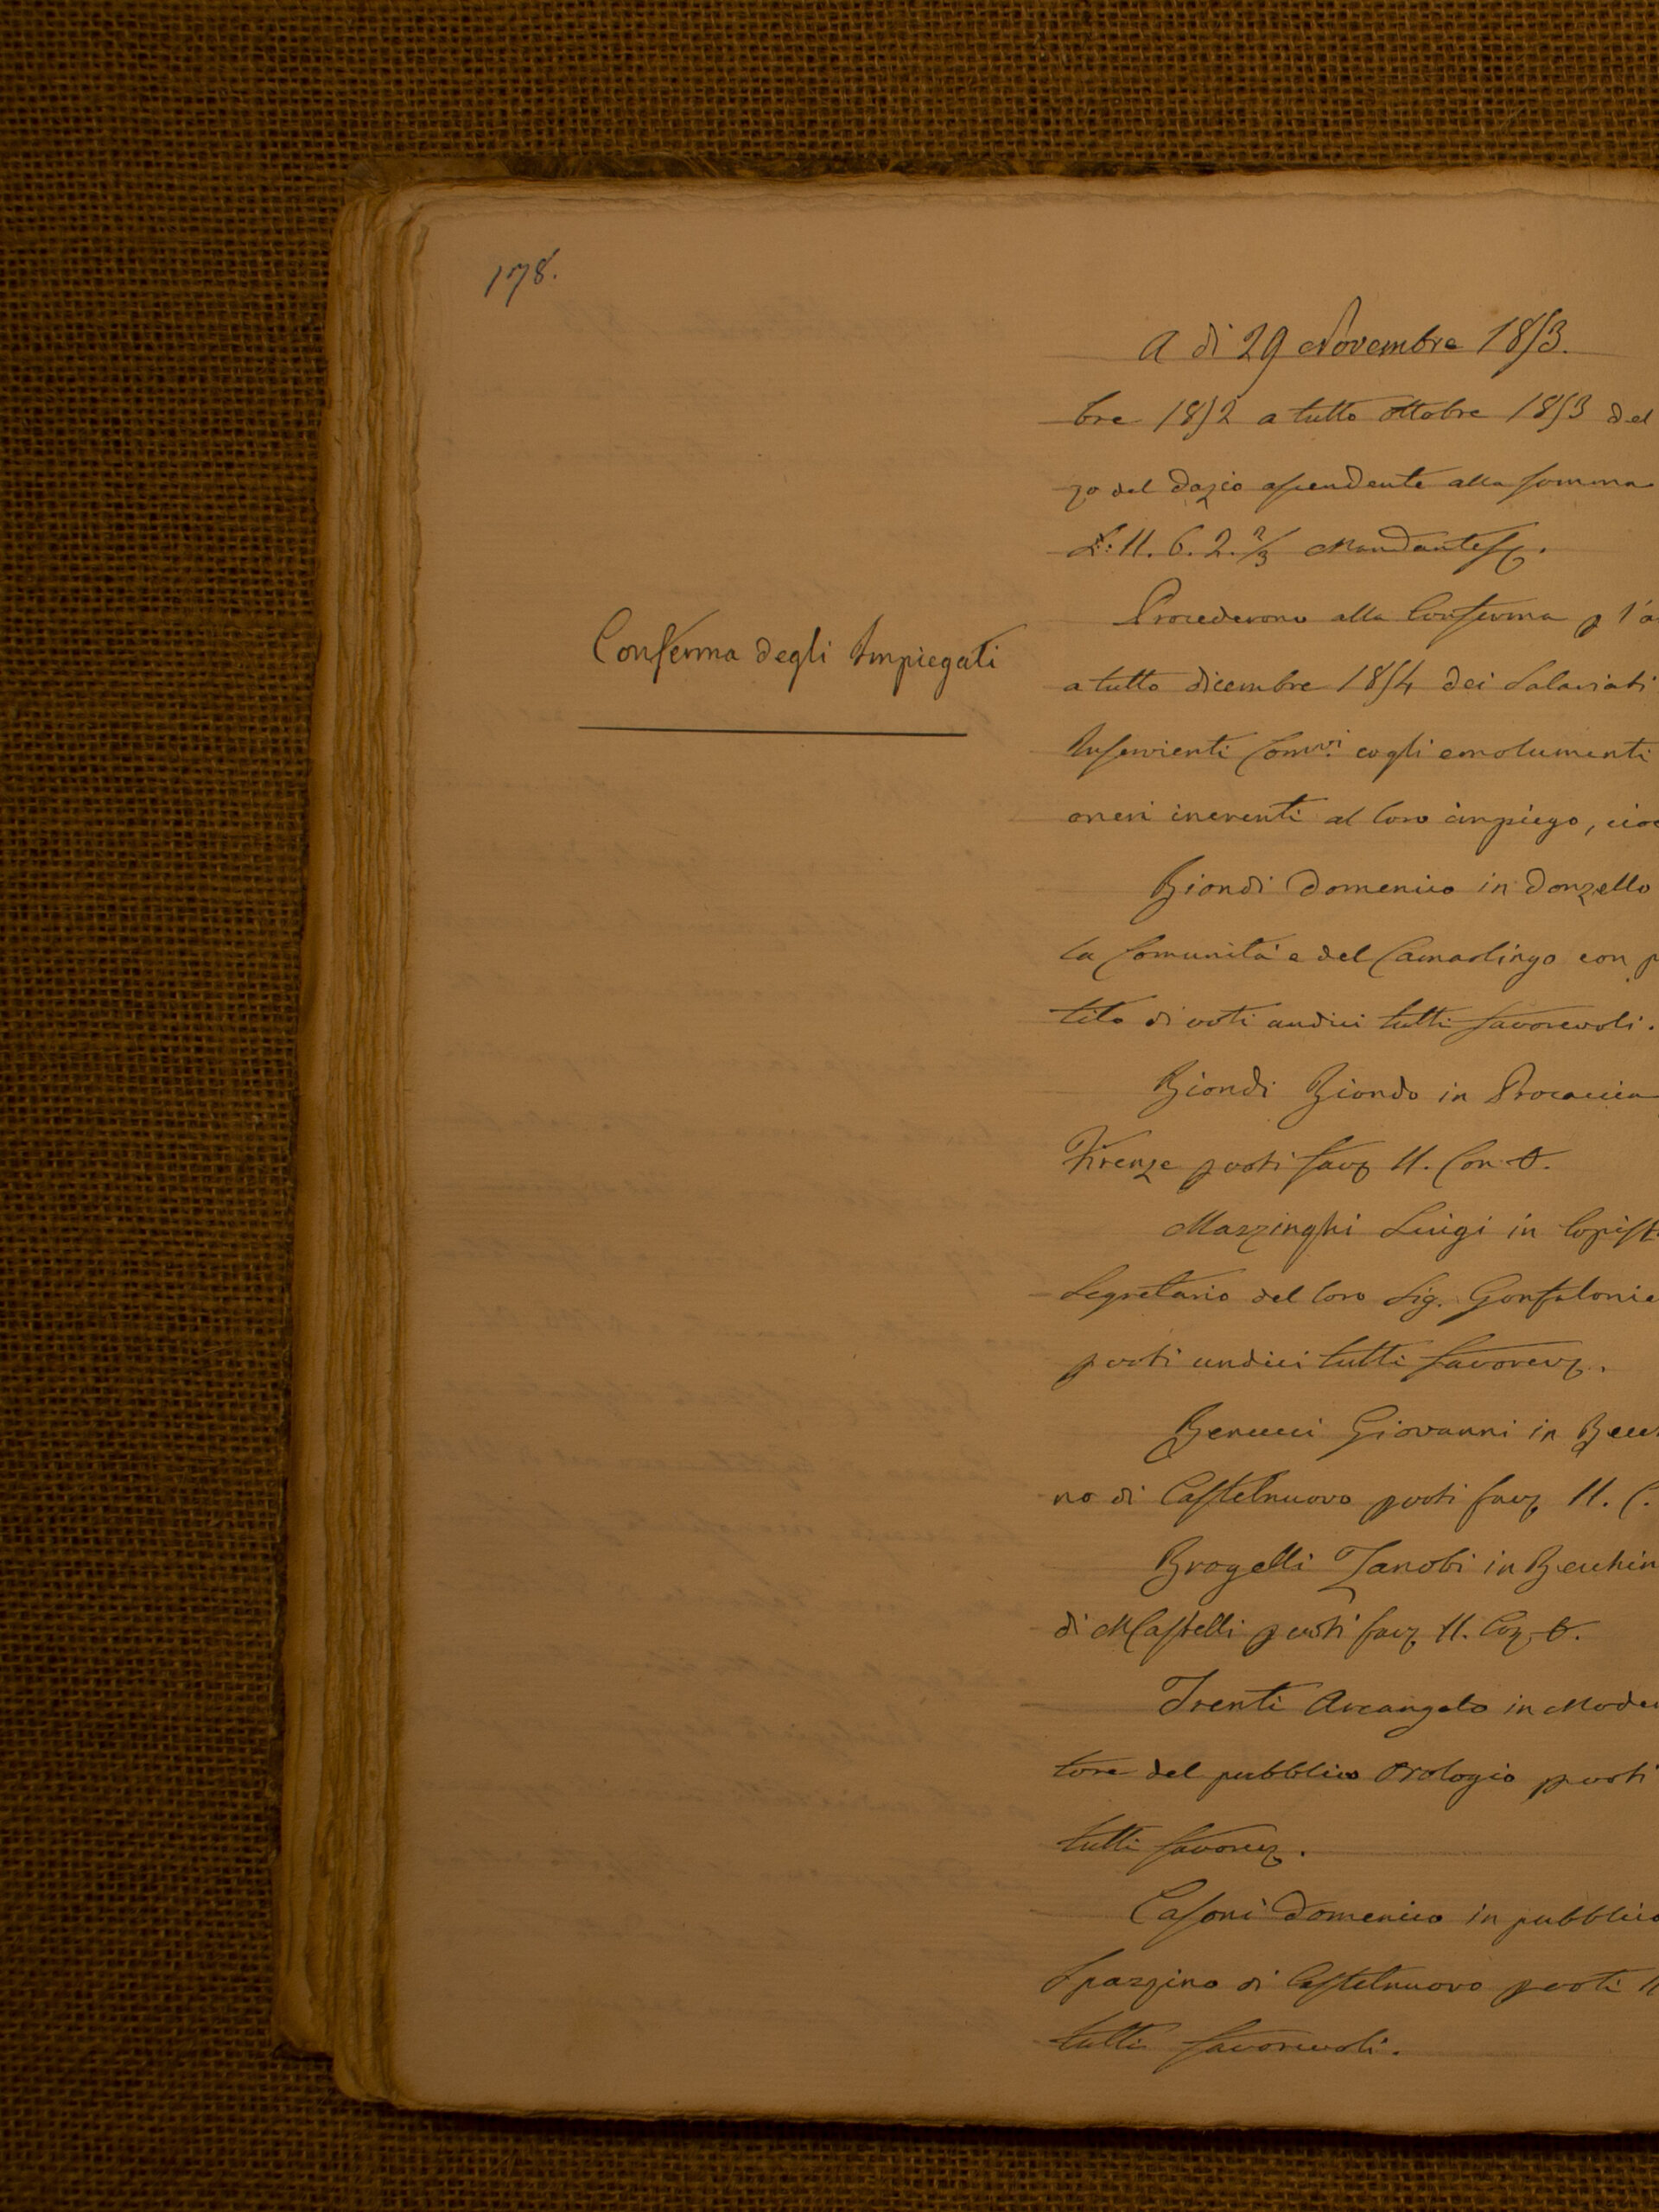 178.
A dì 29 Novembre 1853.
bre 1852 a tutto Ottobre 1853 del
zo del Dazio ascendente alla somma
£: 11. 6. 2. 2/3
Conferma degli Impiegati
Procederono alla Conferma p l'a
a tutto dicembre 1854 dei Salariati
Inservienti Com.vi cogli emolumenti
oneri inerenti al loro impiego, cioe
Biondi Domenico in Donzello
la Comunità e del Camarlingo con p
tito di voti undici tutti favorevoli.
Biondi Biondo in Procaccia
Firenze p voti fav 11. Con 0.
Mazzinghi Luigi in Copist
Segretario del loro Sig. Gonfalonie
p voti undici tutti favorev.
Benucci Giovanni in Becc
no di Castelnuovo p voti fav 11. C.
Brogelli Zanobi in Becchin
di MCastelli p voti fav 11. Con 0.
Trenti Arcangelo in Mode
tore del pubblico Orologio p voti
tutti favorev.
Casoni Domenico in pubblico
Spazzino di Castelnuovo p voti 11
tutti favorevoli.